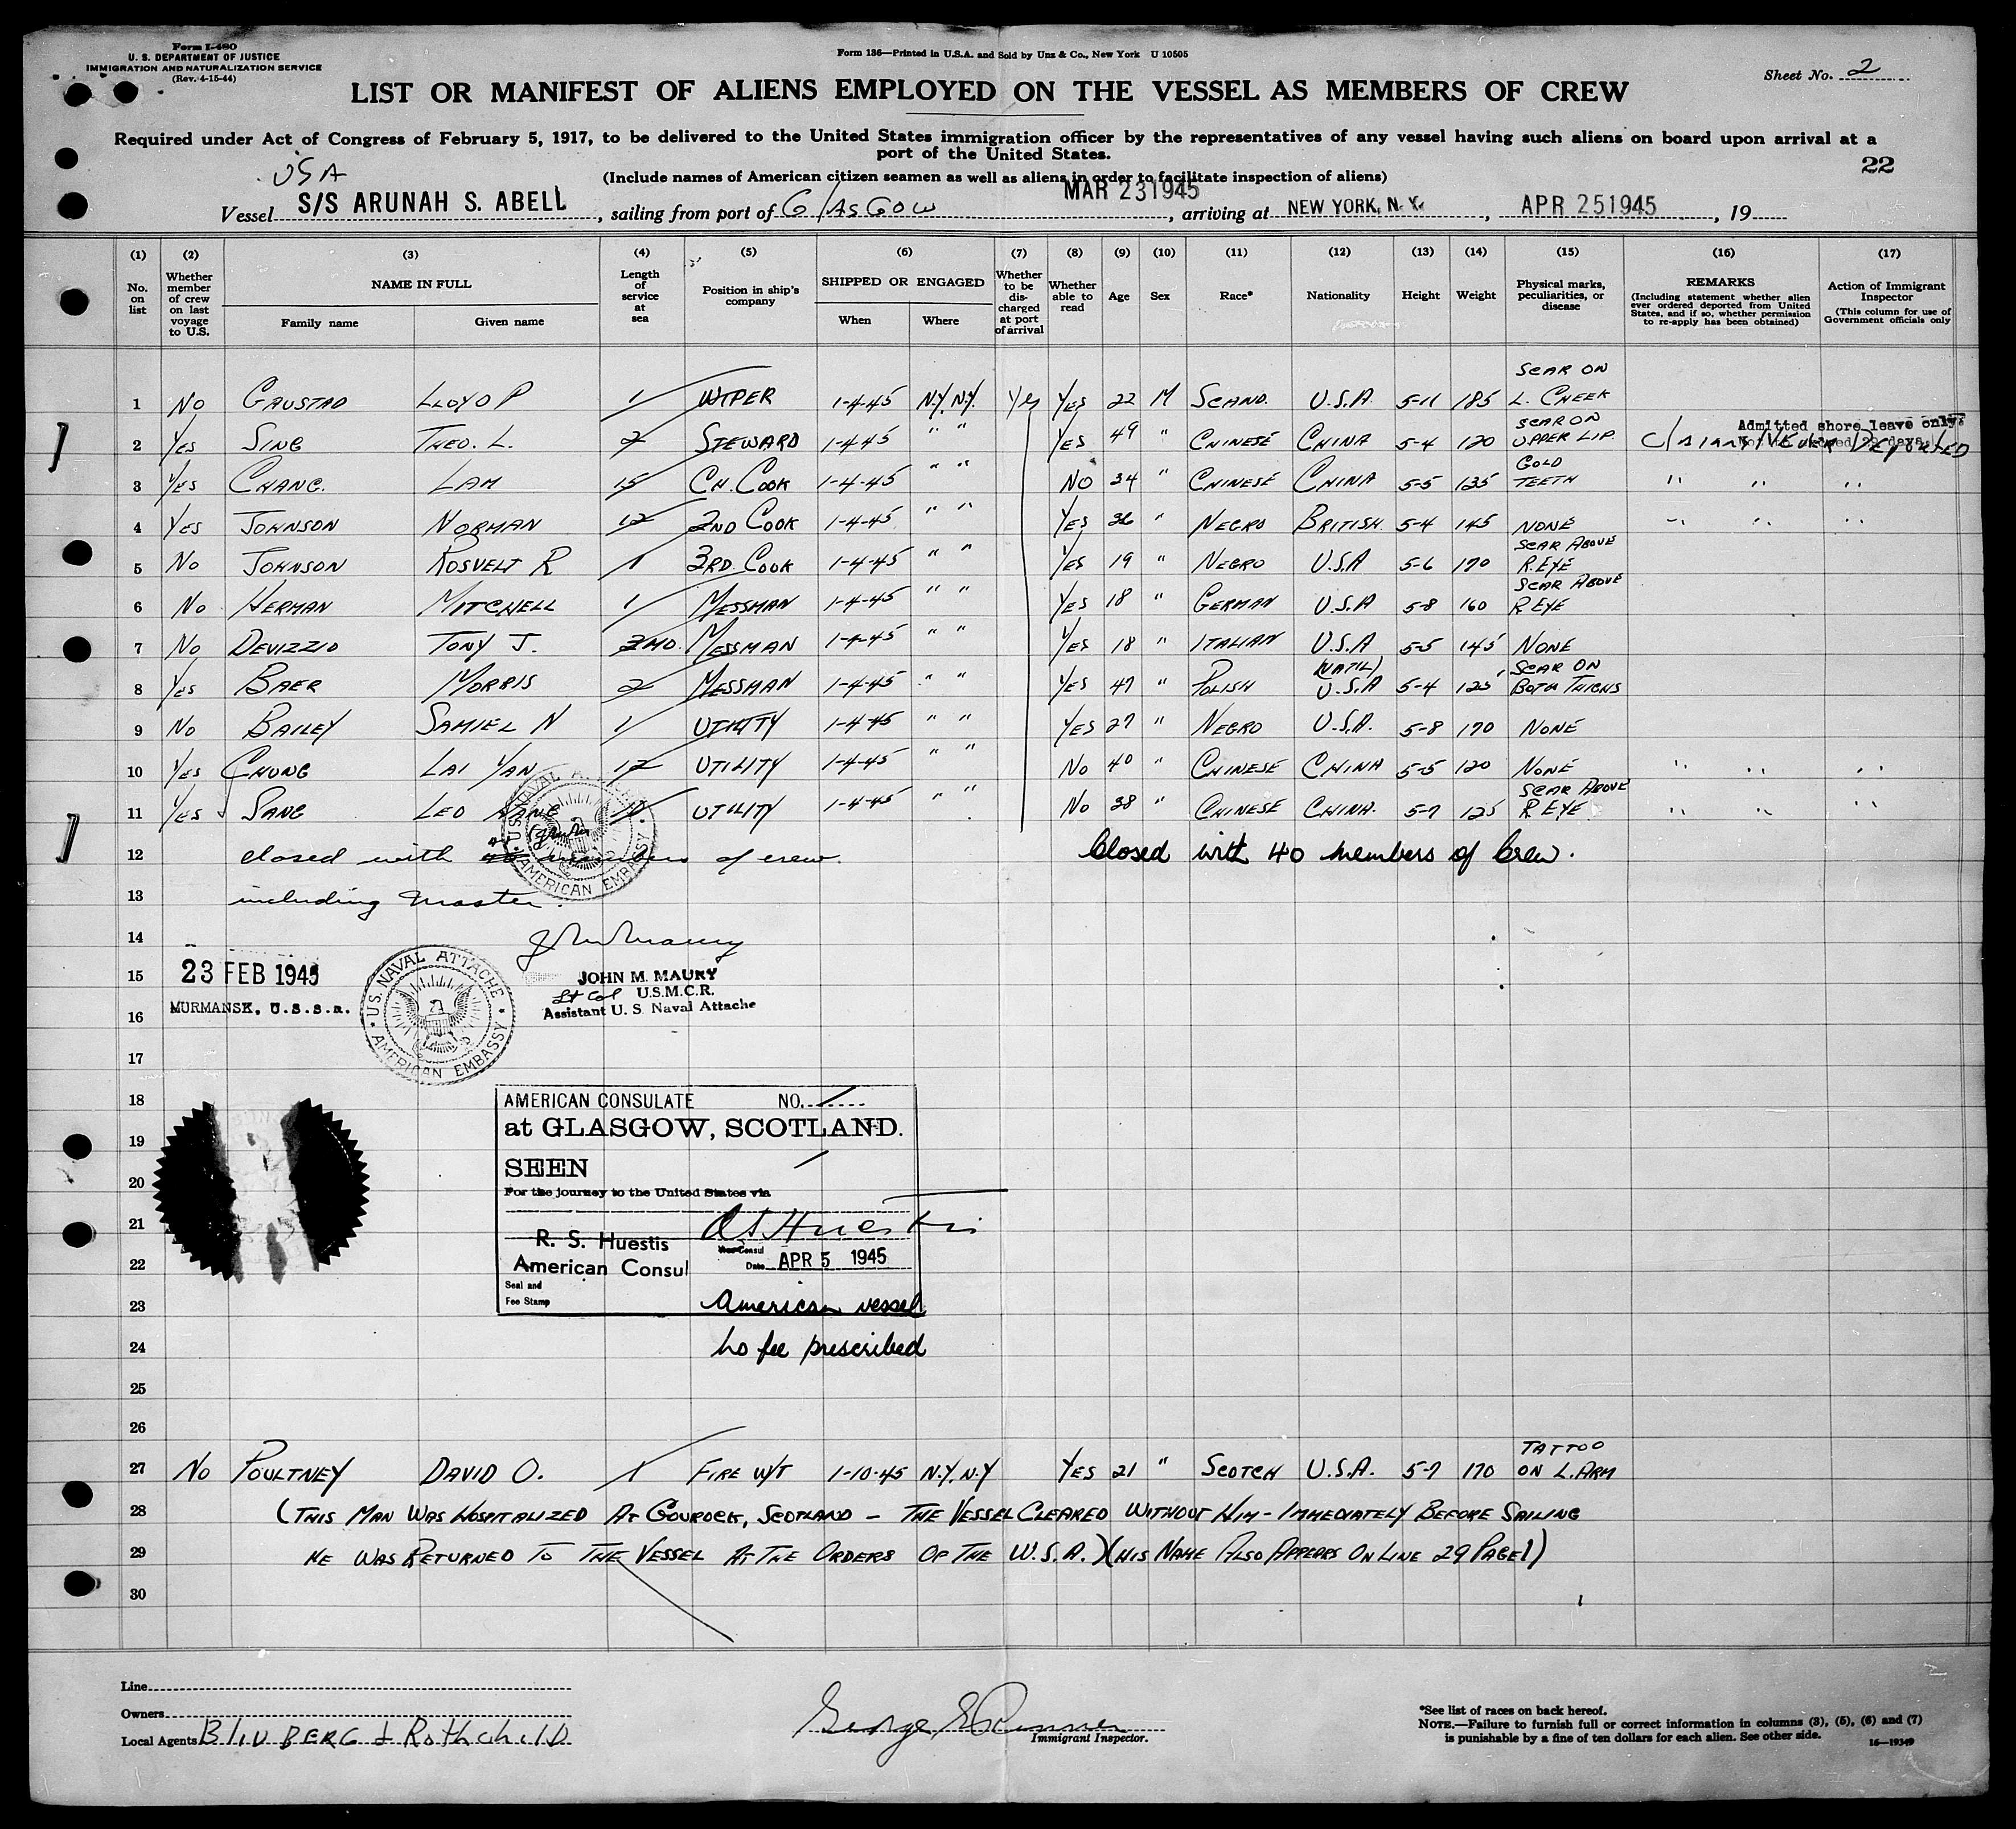 Form I-480
U. S. DEPARTMENT OF JUSTICE
IMMIGRATION AND NATURALIZATION SERVICE
(Rev. 4-15-44)
Form 136—Printed in U.S.A. and Sold by Unz & Co., New York U 10505
Sheet No. 2
LIST OR MANIFEST OF ALIENS EMPLOYED ON THE VESSEL AS MEMBERS OF CREW
Required under Act of Congress of February 5, 1917, to be delivered to the United States immigration officer by the representatives of any vessel having such aliens on board upon arrival at a
port of the United States.
22
(Include names of American citizen seamen as well as aliens in order to facilitate inspection of aliens)
USA
Vessel S/S ARUNAH S. ABELL, sailing from port of GLASGOW MAR 23 1945, arriving at NEW YORK, N.Y., APR 25 1945, 19
(1) (2) (3) (4) (5) (6) (7) (8) (9) (10) (11) (12) (13) (14) (15) (16) (17)
No. on list
Whether member of crew on last voyage to U.S.
NAME IN FULL
Family name Given name
Length of service at sea
Position in ship's company
SHIPPED OR ENGAGED
When Where
Whether to be discharged at port of arrival
Whether able to read
Age
Sex
Race*
Nationality
Height
Weight
Physical marks, peculiarities, or disease
REMARKS
(Including statement whether alien ever ordered deported from United States, and if so, whether permission to re-apply has been obtained)
Action of Immigrant Inspector
(This column for use of Government officials only
1 NO GAUSTAD LLOYD P 1 WIPER 1-4-45 N.Y. N.Y. Yes YES 22 M SCAND. U.S.A. 5-11 185 SCAR ON L. CHEEK
2 YES SING THEO. L. 2 STEWARD 1-4-45 " " YES 49 " CHINESE CHINA 5-4 120 SCAR ON UPPER LIP Claims NEVER DEPORTED Admitted shore leave only.
3 YES CHANG. LAM 15 CH. COOK 1-4-45 " " NO 34 " CHINESE CHINA 5-5 135 GOLD TEETH " " "
4 YES JOHNSON NORMAN 12 2ND COOK 1-4-45 " " YES 36 " NEGRO BRITISH. 5-4 145 NONE " " "
5 NO JOHNSON ROSVELT R 1 3RD COOK 1-4-45 " " YES 19 " NEGRO U.S.A 5-6 170 SCAR ABOVE R.EYE
6 NO HERMAN MITCHELL 1 MESSMAN 1-4-45 " " YES 18 " GERMAN U.S.A 5-8 160 SCAR ABOVE R EYE
7 NO DEVIZZIO TONY J. 2MO. MESSMAN 1-4-45 " " YES 18 " ITALIAN U.S.A 5-5 145 NONE
8 YES BAER MORRIS 2 MESSMAN 1-4-45 " " YES 47 " POLISH (NATIL) U.S.A 5-4 125 SCAR ON BOTH THIGHS
9 NO BAILEY SAMIEL N 1 UTILITY 1-4-45 " " YES 27 " NEGRO U.S.A. 5-8 170 NONE
10 YES CHUNG LAI YAN 12 UTILITY 1-4-45 " " NO 40 " CHINESE CHINA 5-5 120 NONE " " "
11 YES SANG LEO UTILITY 1-4-45 " " NO 38 " CHINESE CHINA. 5-7 125 SCAR ABOVE R EYE " " "
12 closed with members of crew Closed with 40 members of Crew.
13 including Master.
14
JOHN M. MAURY
15 23 FEB 1945
Lt Col U.S.M.C.R.
MURMANSK, U.S.S.R.
Assistant U. S. Naval Attache
U.S. NAVAL ATTACHE
AMERICAN EMBASSY
U.S. NAVAL
AMERICAN EMBASSY
16
17
18 AMERICAN CONSULATE NO.
19 at GLASGOW, SCOTLAND.
SEEN
20 For the journey to the United States via
21 R. S. Huestis
Vice Consul
22 American Consul Date APR 5 1945
Seal and
Fee Stamp
23 American vessel
24 no fee prescribed
25
26
27 NO POULTNEY DAVID O. 1 FIRE W/T 1-10-45 N.Y. N.Y YES 21 " SCOTCH U.S.A. 5-7 170 TATTOO ON L. ARM
28 (THIS MAN WAS HOSPITALIZED AT GOUROCK, SCOTLAND - THE VESSEL CLEARED WITHOUT HIM - IMMEDIATELY BEFORE SAILING
29 HE WAS RETURNED TO THE VESSEL AT THE ORDERS OF THE W.S.A.) (HIS NAME ALSO APPEARS ON LINE 29 PAGE 1)
30
Line
Owners
Local Agents BLIDBERG & RothchilD
Immigrant Inspector.
*See list of races on back hereof.
NOTE.—Failure to furnish full or correct information in columns (3), (5), (6) and (7)
is punishable by a fine of ten dollars for each alien. See other side. 16—19349